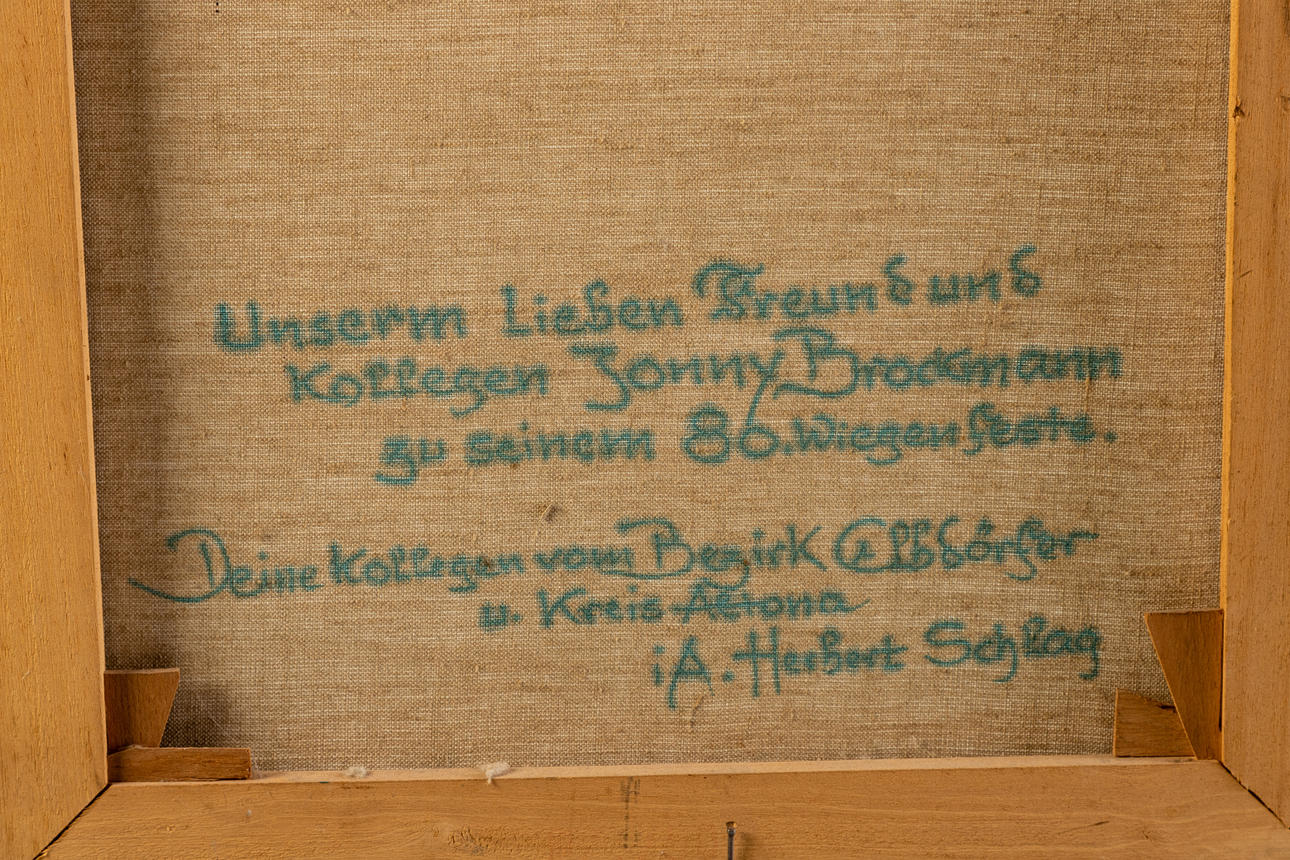 Unserm Lieben Freund und
Kollegen Jonny Brockmann
zu seinem 86. Wiegenfeste.
Deine Kollegen vom Bezirk Elbdörfer
u. Kreis Altona
iA. Herbert Schlag